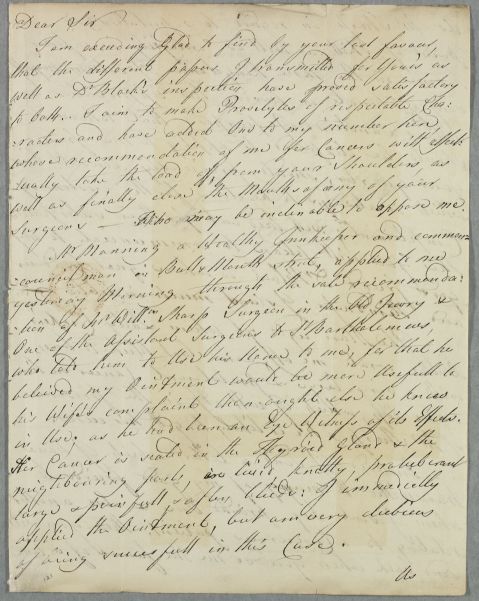 Dear Sir
I am exceeding Glad to find by your last favour,
that the different papers I transmitted for Yours as
well as Dr Black's inspection have proved satisfactory
to both. I aim to make Proselytes of respectable Cha:
racters and have added One to my number here
whose recommendation of me for Cancers will effect:
ually take the load off from your Shoulders as
well as finally close the Mouths of any of your
Surgeons who may be inclinable to oppose me.
Mr Manning a Wealthy Innkeeper and common:
council man in Bull & Mouth Street, applied to me
yesterday Morning through the sole recommenda:
tion of Mr Willm Sharp Surgeon in the Old Jewry &
One of the Assistant Surgeons to St Bartholemews,
who told him to Use his Name to me, for that he
beleived my Ointment would be more Usefull to
his Wifes complaint than ought else he knew
in Use, as he had been an Eye Witness of its Effects.
Her Cancer is seated in the Thyroid Gland & the
neighbouring parts, is livid knotty, protuberant
large & painfull & often bleeds: I immediately
applied the Ointment, but am very dubious
of being successfull in this Case.
As